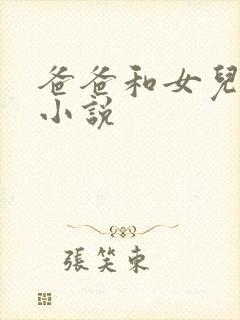 爸爸和女兒
小說
張笑東